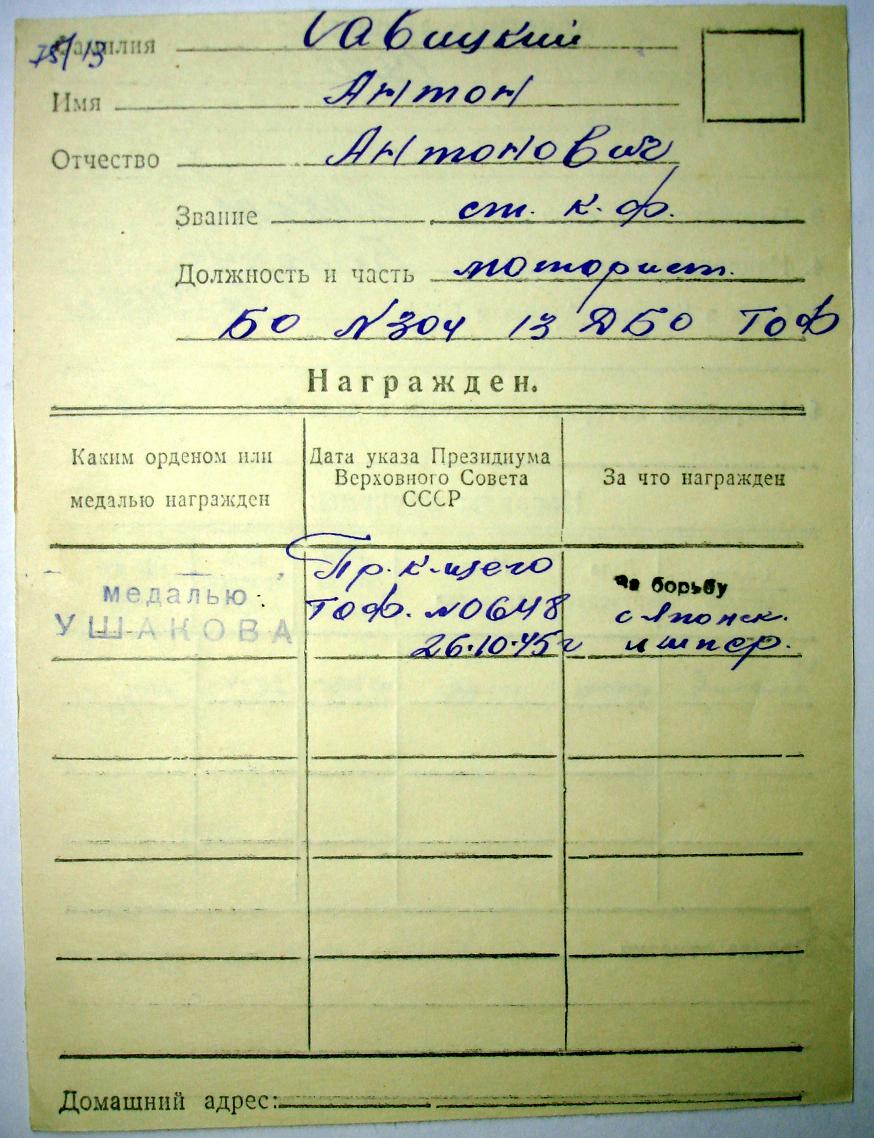 75/13
Фамилия Савицкий
Имя Антон
Отчество Антонович
Звание ст. к. ф.
Должность и часть моторист.
БО №304 13 ДБО ТОФ
Награжден.
Каким орденом или медалью награжден
Дата указа Президиума Верховного Совета СССР
За что награжден
медалью
УШАКОВА
Пр. к-щего
ТОФ. №0648
26.10.45г
за борьбу
с Японск.
импер.
Домашний адрес: